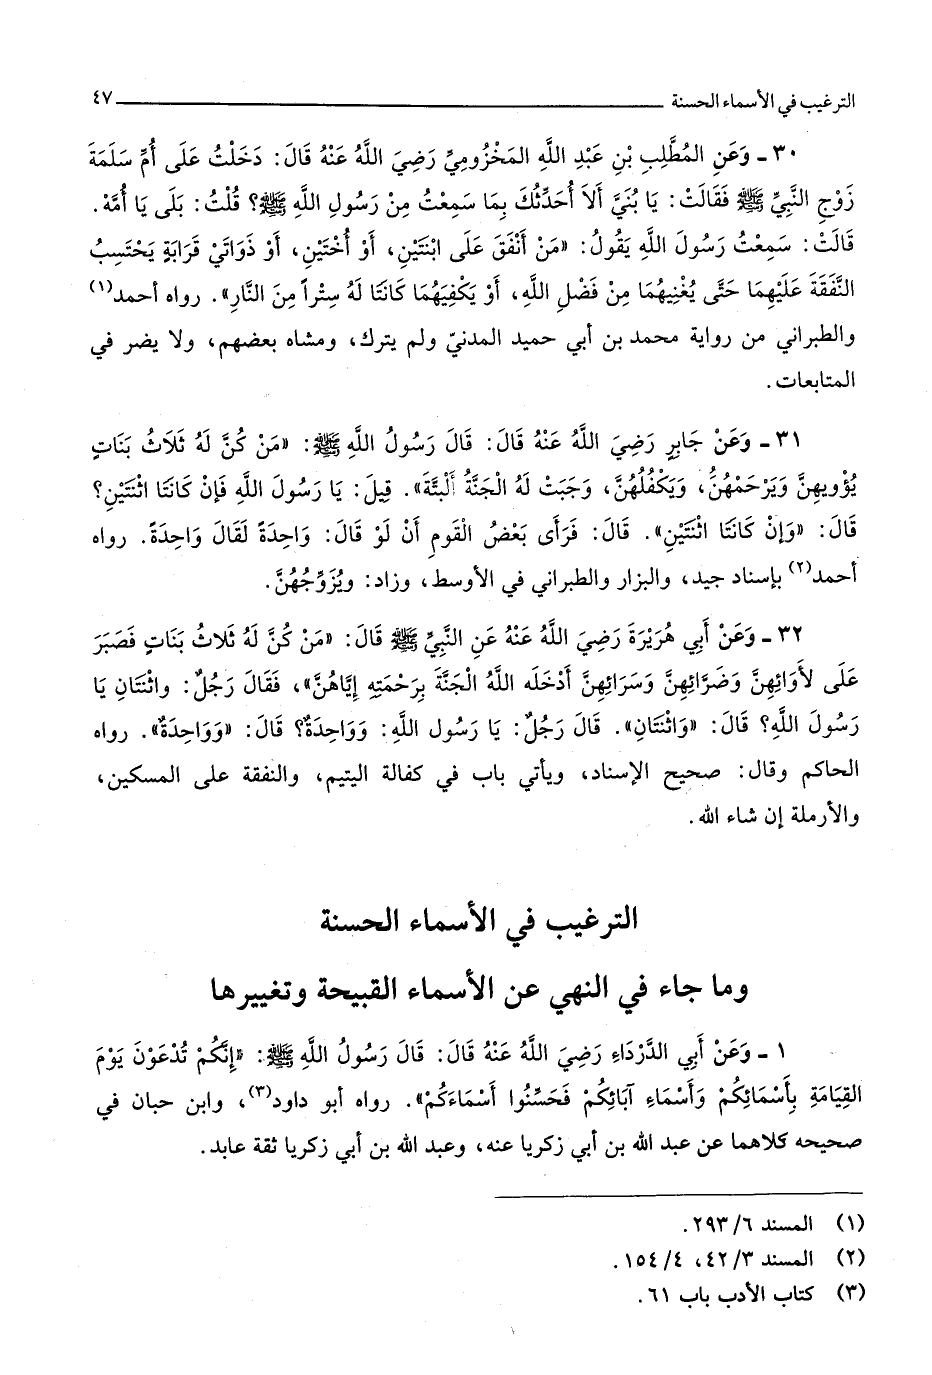 الترغيب في الأسماء الحسنة ٤٧
٣٠ - وَعَنِ المُطَّلِبِ بْنِ عَبْدِ اللَّهِ المَخْزُومِيِّ رَضِيَ اللَّهُ عَنْهُ قَالَ: دَخَلْتُ عَلَى أُمِّ سَلَمَةَ
زَوْجِ النَّبِيِّ ﷺ فَقَالَتْ: يَا بُنَيَّ أَلاَ أُحَدِّثُكَ بِمَا سَمِعْتُ مِنْ رَسُولِ اللَّهِ ﷺ؟ قُلْتُ: بَلَى يَا أُمَّهْ.
قَالَتْ: سَمِعْتُ رَسُولَ اللَّهِ يَقُولُ: «مَنْ أَنْفَقَ عَلَى ابْنَتَيْنِ، أَوْ أُخْتَيْنِ، أَوْ ذَوَاتَيْ قَرَابَةٍ يَحْتَسِبُ
النَّفَقَةَ عَلَيْهِمَا حَتَّى يُغْنِيَهُمَا مِنْ فَضْلِ اللَّهِ، أَوْ يَكْفِيَهُمَا كَانَتَا لَهُ سِتْراً مِنَ النَّارِ». رواه أحمد(١)
والطبراني من رواية محمد بن أبي حميد المدنيّ ولم يترك، ومشاه بعضهم، ولا يضر في
المتابعات.
٣١ - وَعَنْ جَابِرٍ رَضِيَ اللَّهُ عَنْهُ قَالَ: قَالَ رَسُولُ اللَّهِ ﷺ: «مَنْ كُنَّ لَهُ ثَلَاثُ بَنَاتٍ
يُؤْوِيهِنَّ وَيَرْحَمُهُنَّ، وَيَكْفُلُهُنَّ، وَجَبَتْ لَهُ الْجَنَّةُ أَلْبَتَّةَ». قِيلَ: يَا رَسُولَ اللَّهِ فَإِنْ كَانَتَا اثْنَتَيْنِ؟
قَالَ: «وَإِنْ كَانَتَا اثْنَتَيْنِ». قَالَ: فَرَأَى بَعْضُ الْقَومِ أَنْ لَوْ قَالَ: وَاحِدَةً لَقَالَ وَاحِدَةً. رواه
أحمد(٢) بإسناد جيد، والبزار والطبراني في الأوسط، وزاد: ويُزَوِّجُهُنَّ.
٣٢ - وَعَنْ أَبِي هُرَيْرَةَ رَضِيَ اللَّهُ عَنْهُ عَنِ النَّبِيِّ ﷺ قَالَ: «مَنْ كُنَّ لَهُ ثَلاثُ بَنَاتٍ فَصَبَرَ
عَلَى لأْوَائِهِنَّ وَضَرَّائِهِنَّ وَسَرَائِهِنَّ أَدْخَلَه اللَّهُ الْجَنَّةَ بِرَحْمَتِهِ إِيَّاهُنَّ»، فَقَالَ رَجُلٌ: واثْنَتَانِ يَا
رَسُولَ اللَّهِ؟ قَالَ: «وَاثْنَتَانِ». قَالَ رَجُلٌ: يَا رَسُول اللَّهِ: وَوَاحِدَةٌ؟ قَالَ: «وَوَاحِدَةٌ». رواه
الحاكم وقال: صحيح الإسناد، ويأتي باب في كفالة اليتيم، والنفقة على المسكين،
والأرملة إن شاء الله.
الترغيب في الأسماء الحسنة
وما جاء في النهي عن الأسماء القبيحة وتغييرها
١ - وَعَنْ أَبِي الدَّرْدَاءِ رَضِيَ اللَّهُ عَنْهُ قَالَ: قَالَ رَسُولُ اللَّهِ ﷺ: «إِنَّكُمْ تُدْعَوْنَ يَوْمَ
القِيَامَةِ بِأَسْمَائِكُمْ وَأَسْمَاءِ آبَائِكُمْ فَحَسِّنُوا أَسْمَاءَكُمْ». رواه أبو داود(٣)، وابن حبان في
صحيحه كلاهما عن عبد الله بن أبي زكريا عنه، وعبد الله بن أبي زكريا ثقة عابد.
(١) المسند ٦/ ٢٩٣.
(٢) المسند ٣/ ٤٢، ٤/ ١٥٤.
(٣) كتاب الأدب باب ٦١.